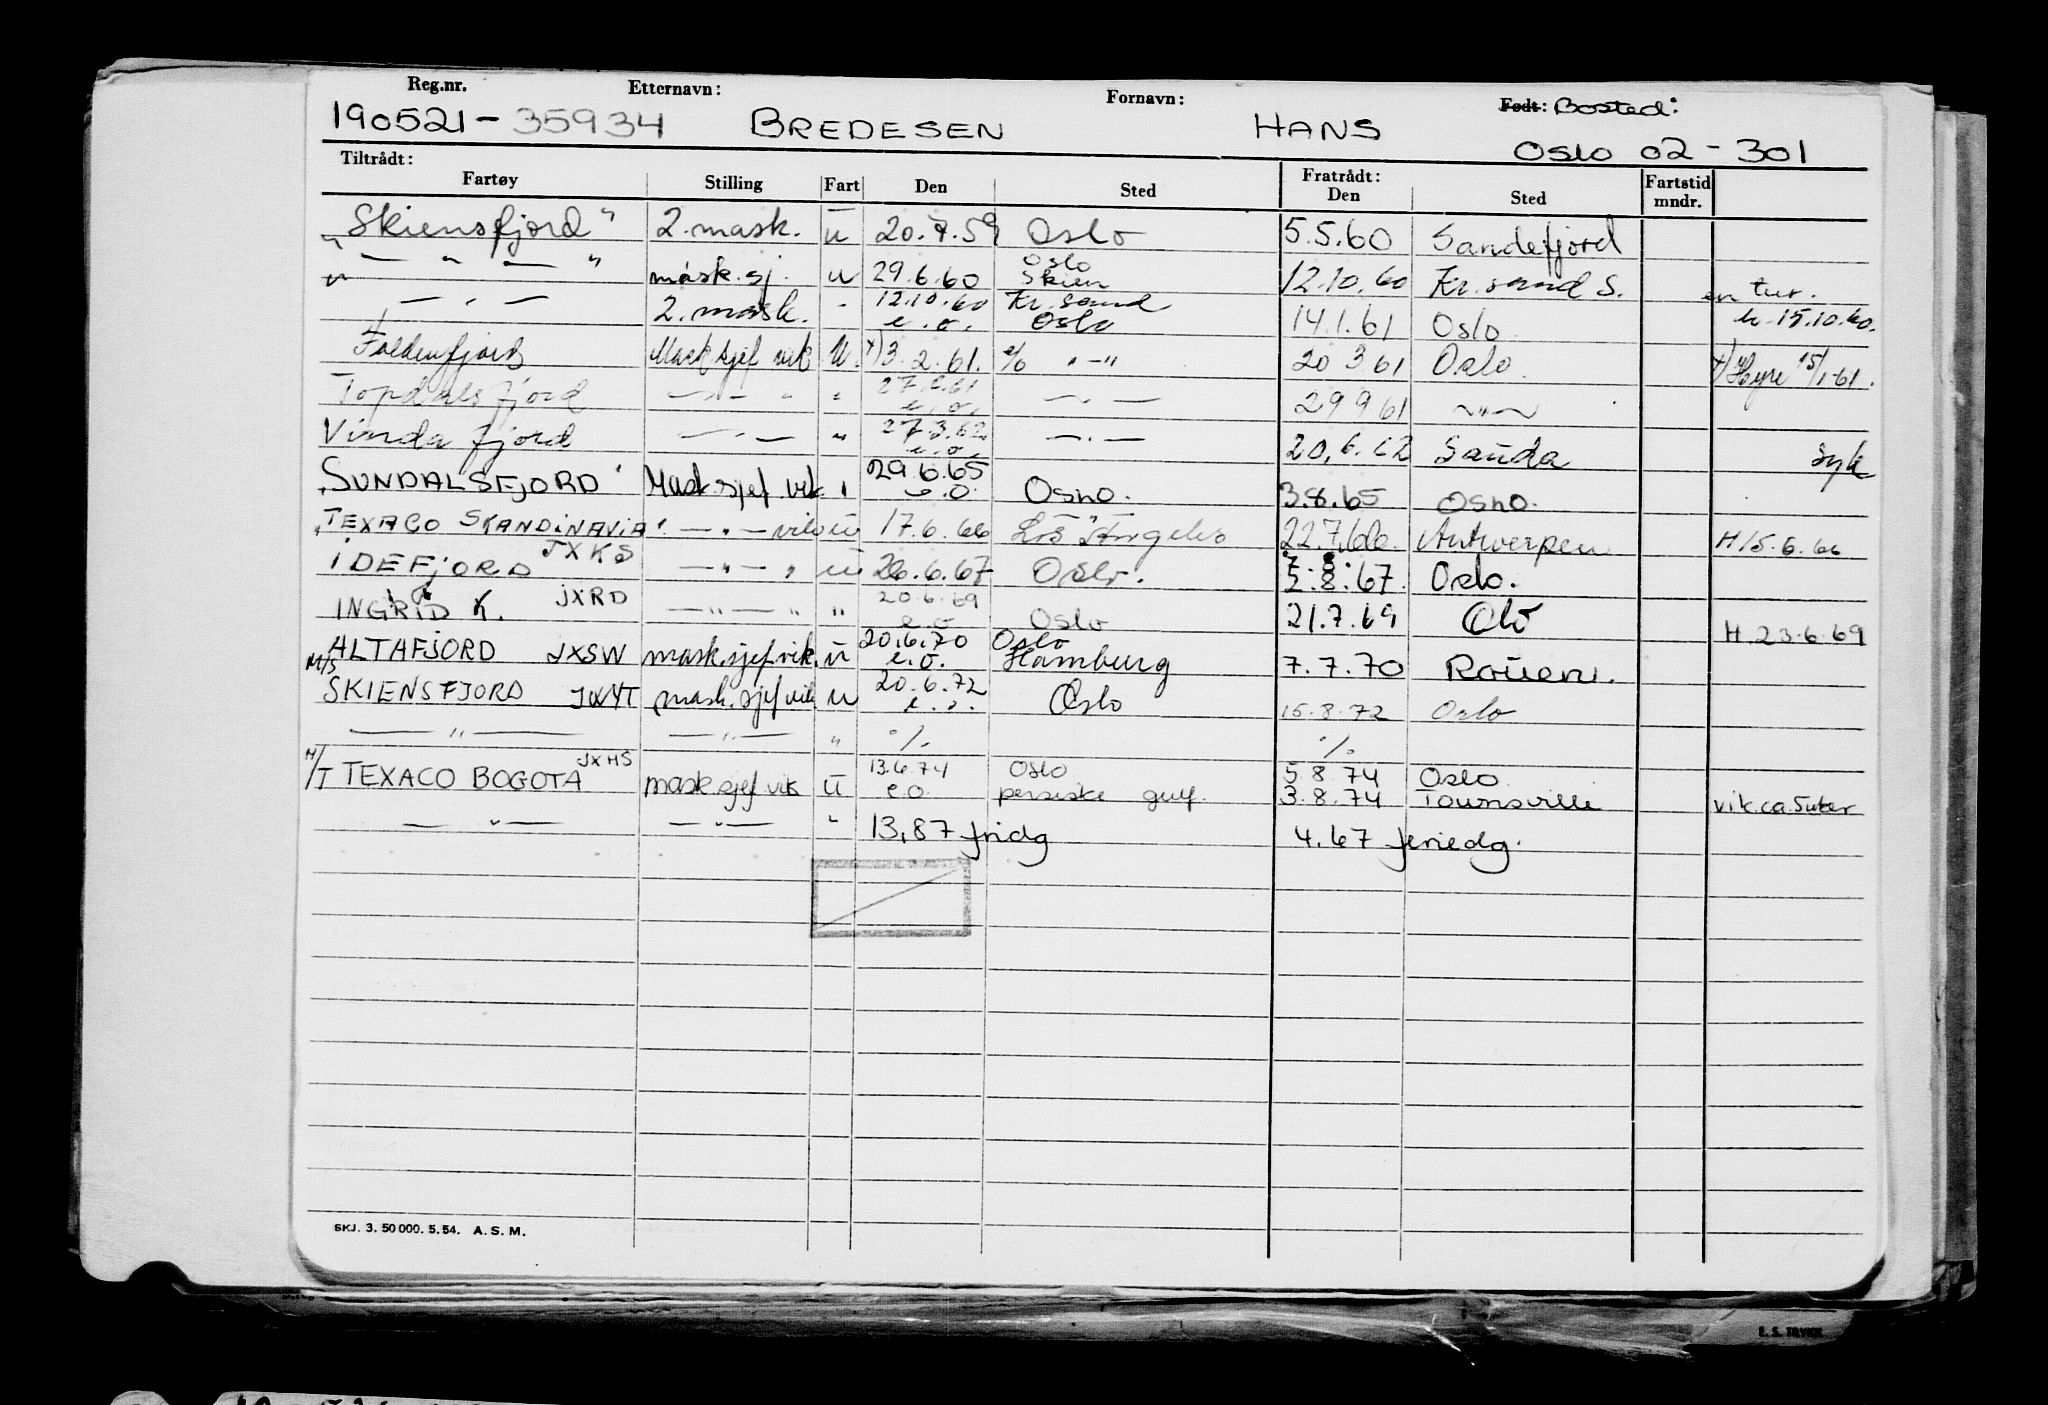 Reg.nr. Etternavn: Fornavn: Født: Bosted:
190521-35934 BREDESEN HANS Oslo 02-301
Tiltrådt: Fratrådt:
Fartøy Stilling Fart Den Sted Den Sted Fartstid mndr.
"Skiensfjord" 2. mask. u 20.7.59 Oslo 5.5.60 Sandefjord
" — " — " mask.sj. u 29.6.60 Oslo Skien 12.10.60 Kr.sand S. en tur.
— " — 2. mask. " 12.10.60 e.o. Kr.sand Oslo 14.1.61 Oslo 15.10.60.
Foldenfjord Mask sjef vik U. x) 3.2.61. e/o " — " 20 3 61 Oslo. x) Hyre 15/1-61.
Topdalsfjord — " — " " 27.2.61 e.o. — " — 29 9 61 — " —
Vindafjord — " — " 27.3.62 e.o. — " — 20.6.62 Sauda syk
"SUNDALSFJORD" Mask.sjef.vik. " 29.6.65 e.o. OSLO. 3.8.65 OSLO.
"TEXACO SKANDINAVIA" — " — vik u 17.6.66 Los Angeles 22.7.66. Antwerpen H 15.6.66
IDEFJORD JXKS — " — " u 26.6.67 Oslo. 7.8. 2.8.67. Oslo.
INGRID K. JXRD — " — " " 20.6.69 e.o Oslo 21.7.69 Olo H 23.6.69
ALTAFJORD JXSW mask.sjef.vik. u 20.6.70 e.o. Oslo Hamburg 7.7.70 Rouen.
M/S SKIENSFJORD JWYT mask.sjef vik u 20.6.72 e.o. Oslo 15.8.72 Oslo
— " — — " — " ./. ./.
M/T TEXACO BOGOTA JXHS mask sjef vik u 13.6.74 e.o. Oslo persiske gulf. 5.8.74 3.8.74 Oslo Townsville vik.ca.5uker
— " — — " — " 13,87 fridg 4.67 feriedg.
SKJ. 3. 50 000. 5. 54. A. S. M.
E. S. TRYKK